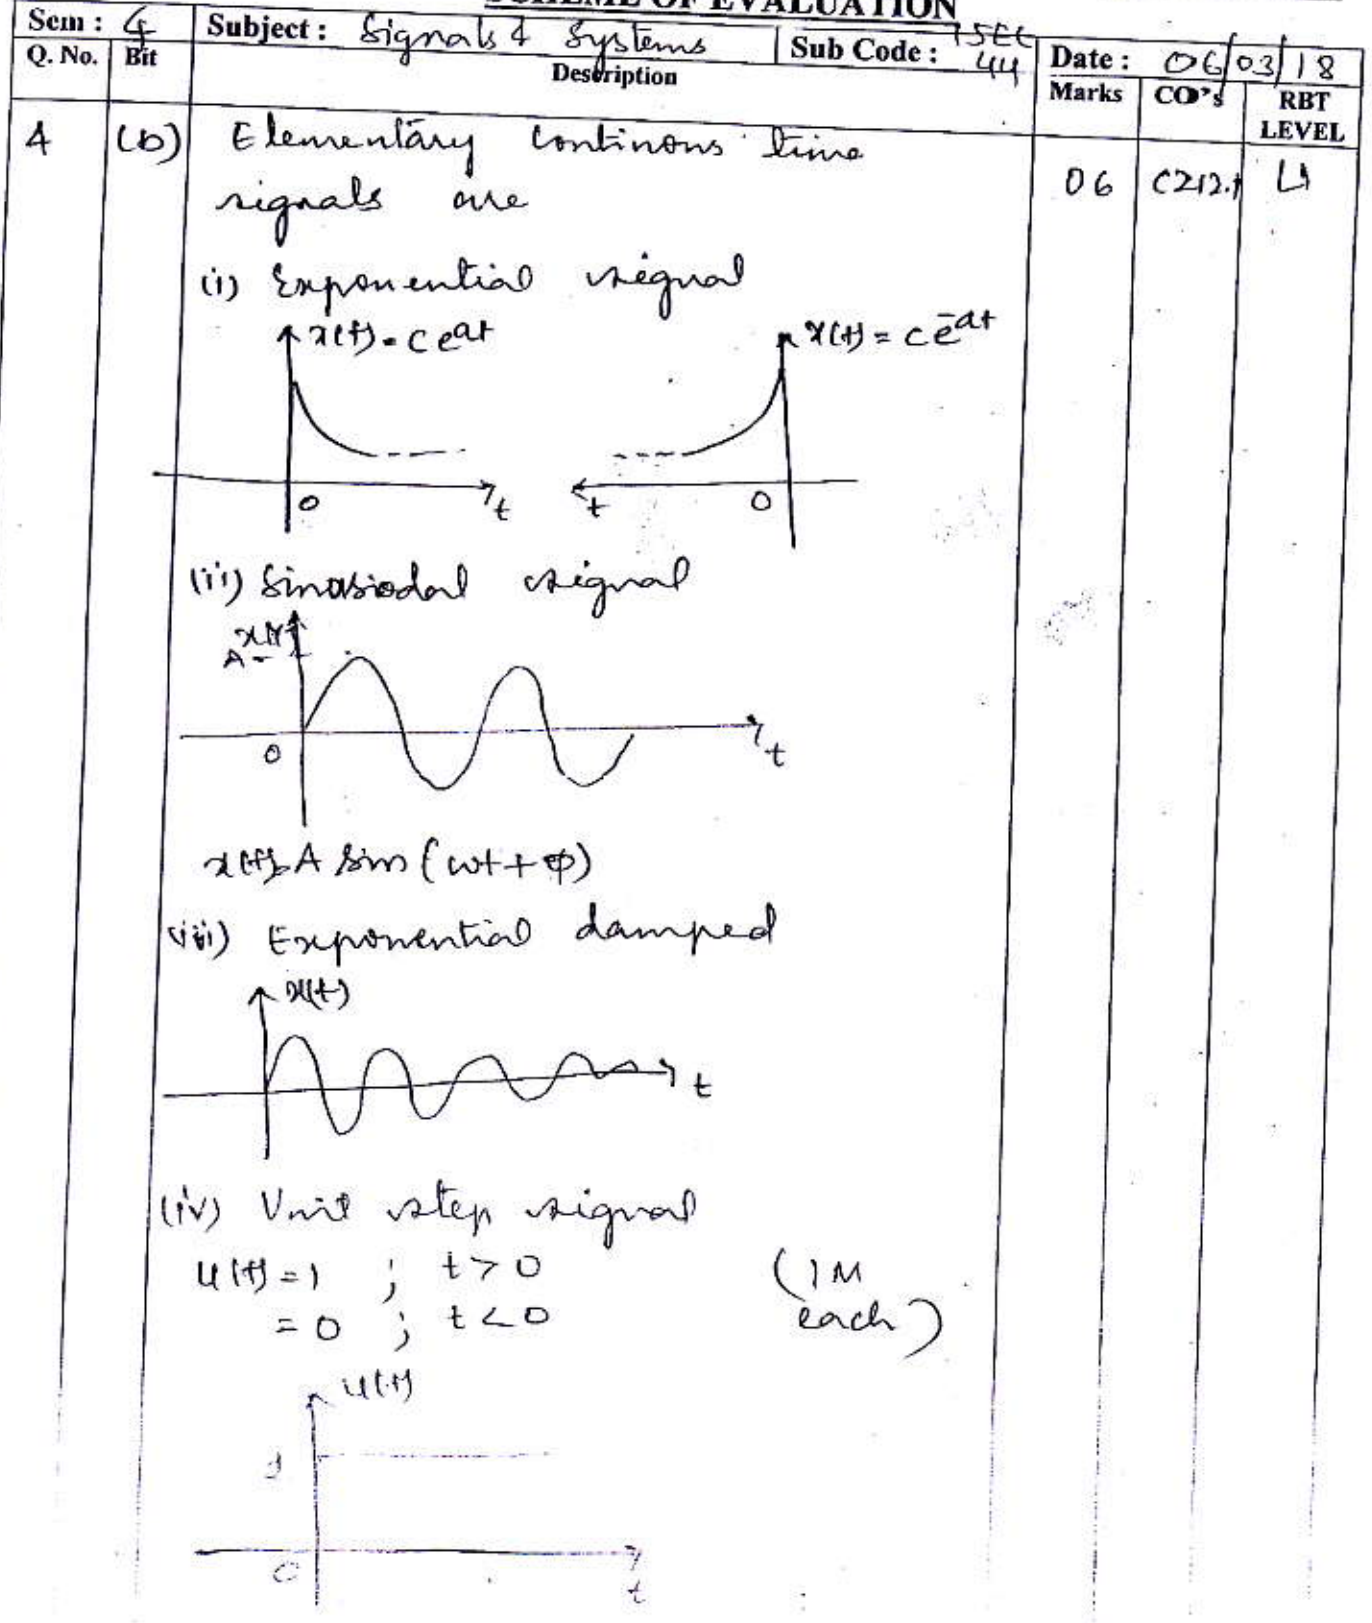 SCHEME OF EVALUATION
Sem : 4 Subject : Signals & Systems Sub Code : 15EC44 Date : 06/03/18
Q. No. Bit Description Marks CO's RBT LEVEL
4 (b) Elementary continous time
signals are
06 C212.1 L1
(i) Exponential signal
x(t) = c e^at x(t) = c e^-at
0 t t 0
(ii) Sinusiodal signal
x(t)
A
0 t
x(t) = A sin (wt + φ)
(iii) Exponential damped
x(t)
t
(iv) Unit step signal
u(t) = 1 ; t > 0
= 0 ; t < 0
(1M
each)
u(t)
1
0 t